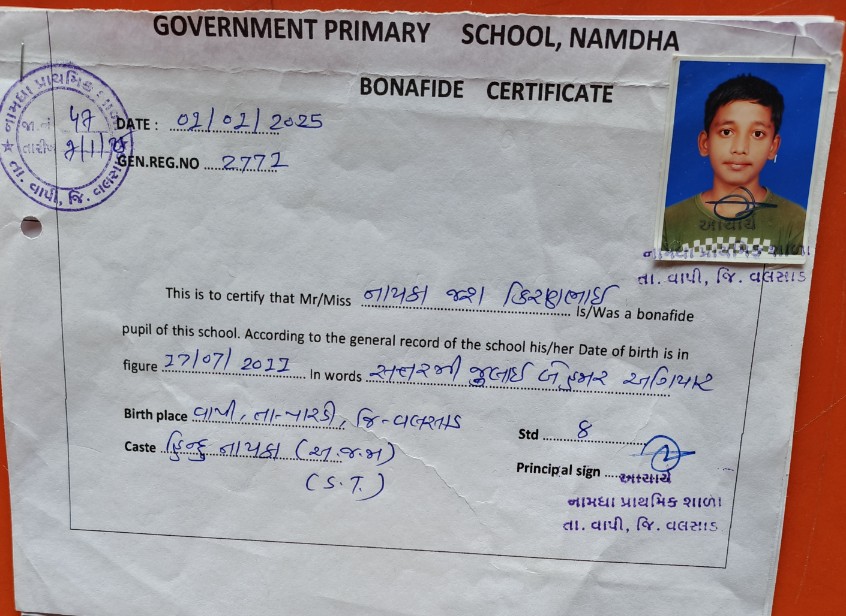 GOVERNMENT PRIMARY SCHOOL, NAMDHA
BONAFIDE CERTIFICATE
નામધા પ્રાથમિક શાળા
જા.નં 47
તારીખ
★ તા. વાપી, જિ. વલસાડ
DATE : 01/01/2025
GEN.REG.NO 2771
આચાર્ય
નામધા પ્રાથમિક શાળા
તા. વાપી, જિ. વલસાડ
This is to certify that Mr/Miss નાયકા જશ કિરણભાઇ Is/Was a bonafide
pupil of this school. According to the general record of the school his/her Date of birth is in
figure 17/07/2011 In words સત્તરમી જુલાઇ બે હજાર અગિયાર
Birth place વાપી, તા-પારડી, જિ-વલસાડ
Std 8
Caste હિન્દુ નાયકા (અ.જ.જા)
(S.T.)
Principal sign
આચાર્ય
નામધા પ્રાથમિક શાળા
તા. વાપી, જિ. વલસાડ